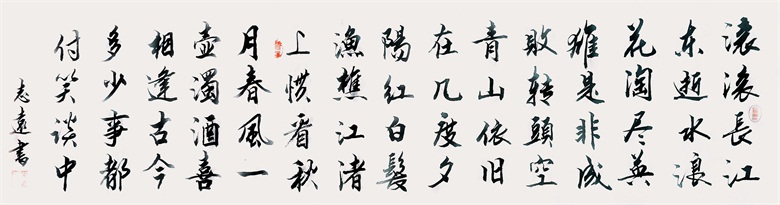 滚滚長江
东逝水浪
花淘尽英
雄是非成
败转頭空
青山依旧
在几度夕
陽红白髮
漁樵江渚
上惯看秋
月春風一
壶濁酒喜
相逢古今
多少事都
付笑谈中
志遠書